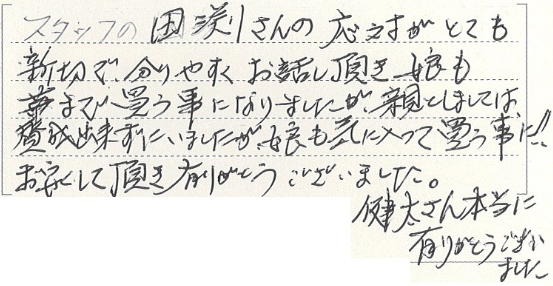 スタッフの 田渕さんの 応対が とても
新切で、分りやすく お話し頂き 娘も
まで買う事になりましたが、親としましては、
賛成出来ずにいましたが、娘も気に入って買う事に!!
お安くして頂き有りがとうございました。
健太さん本当に
有りがとうござい
ました